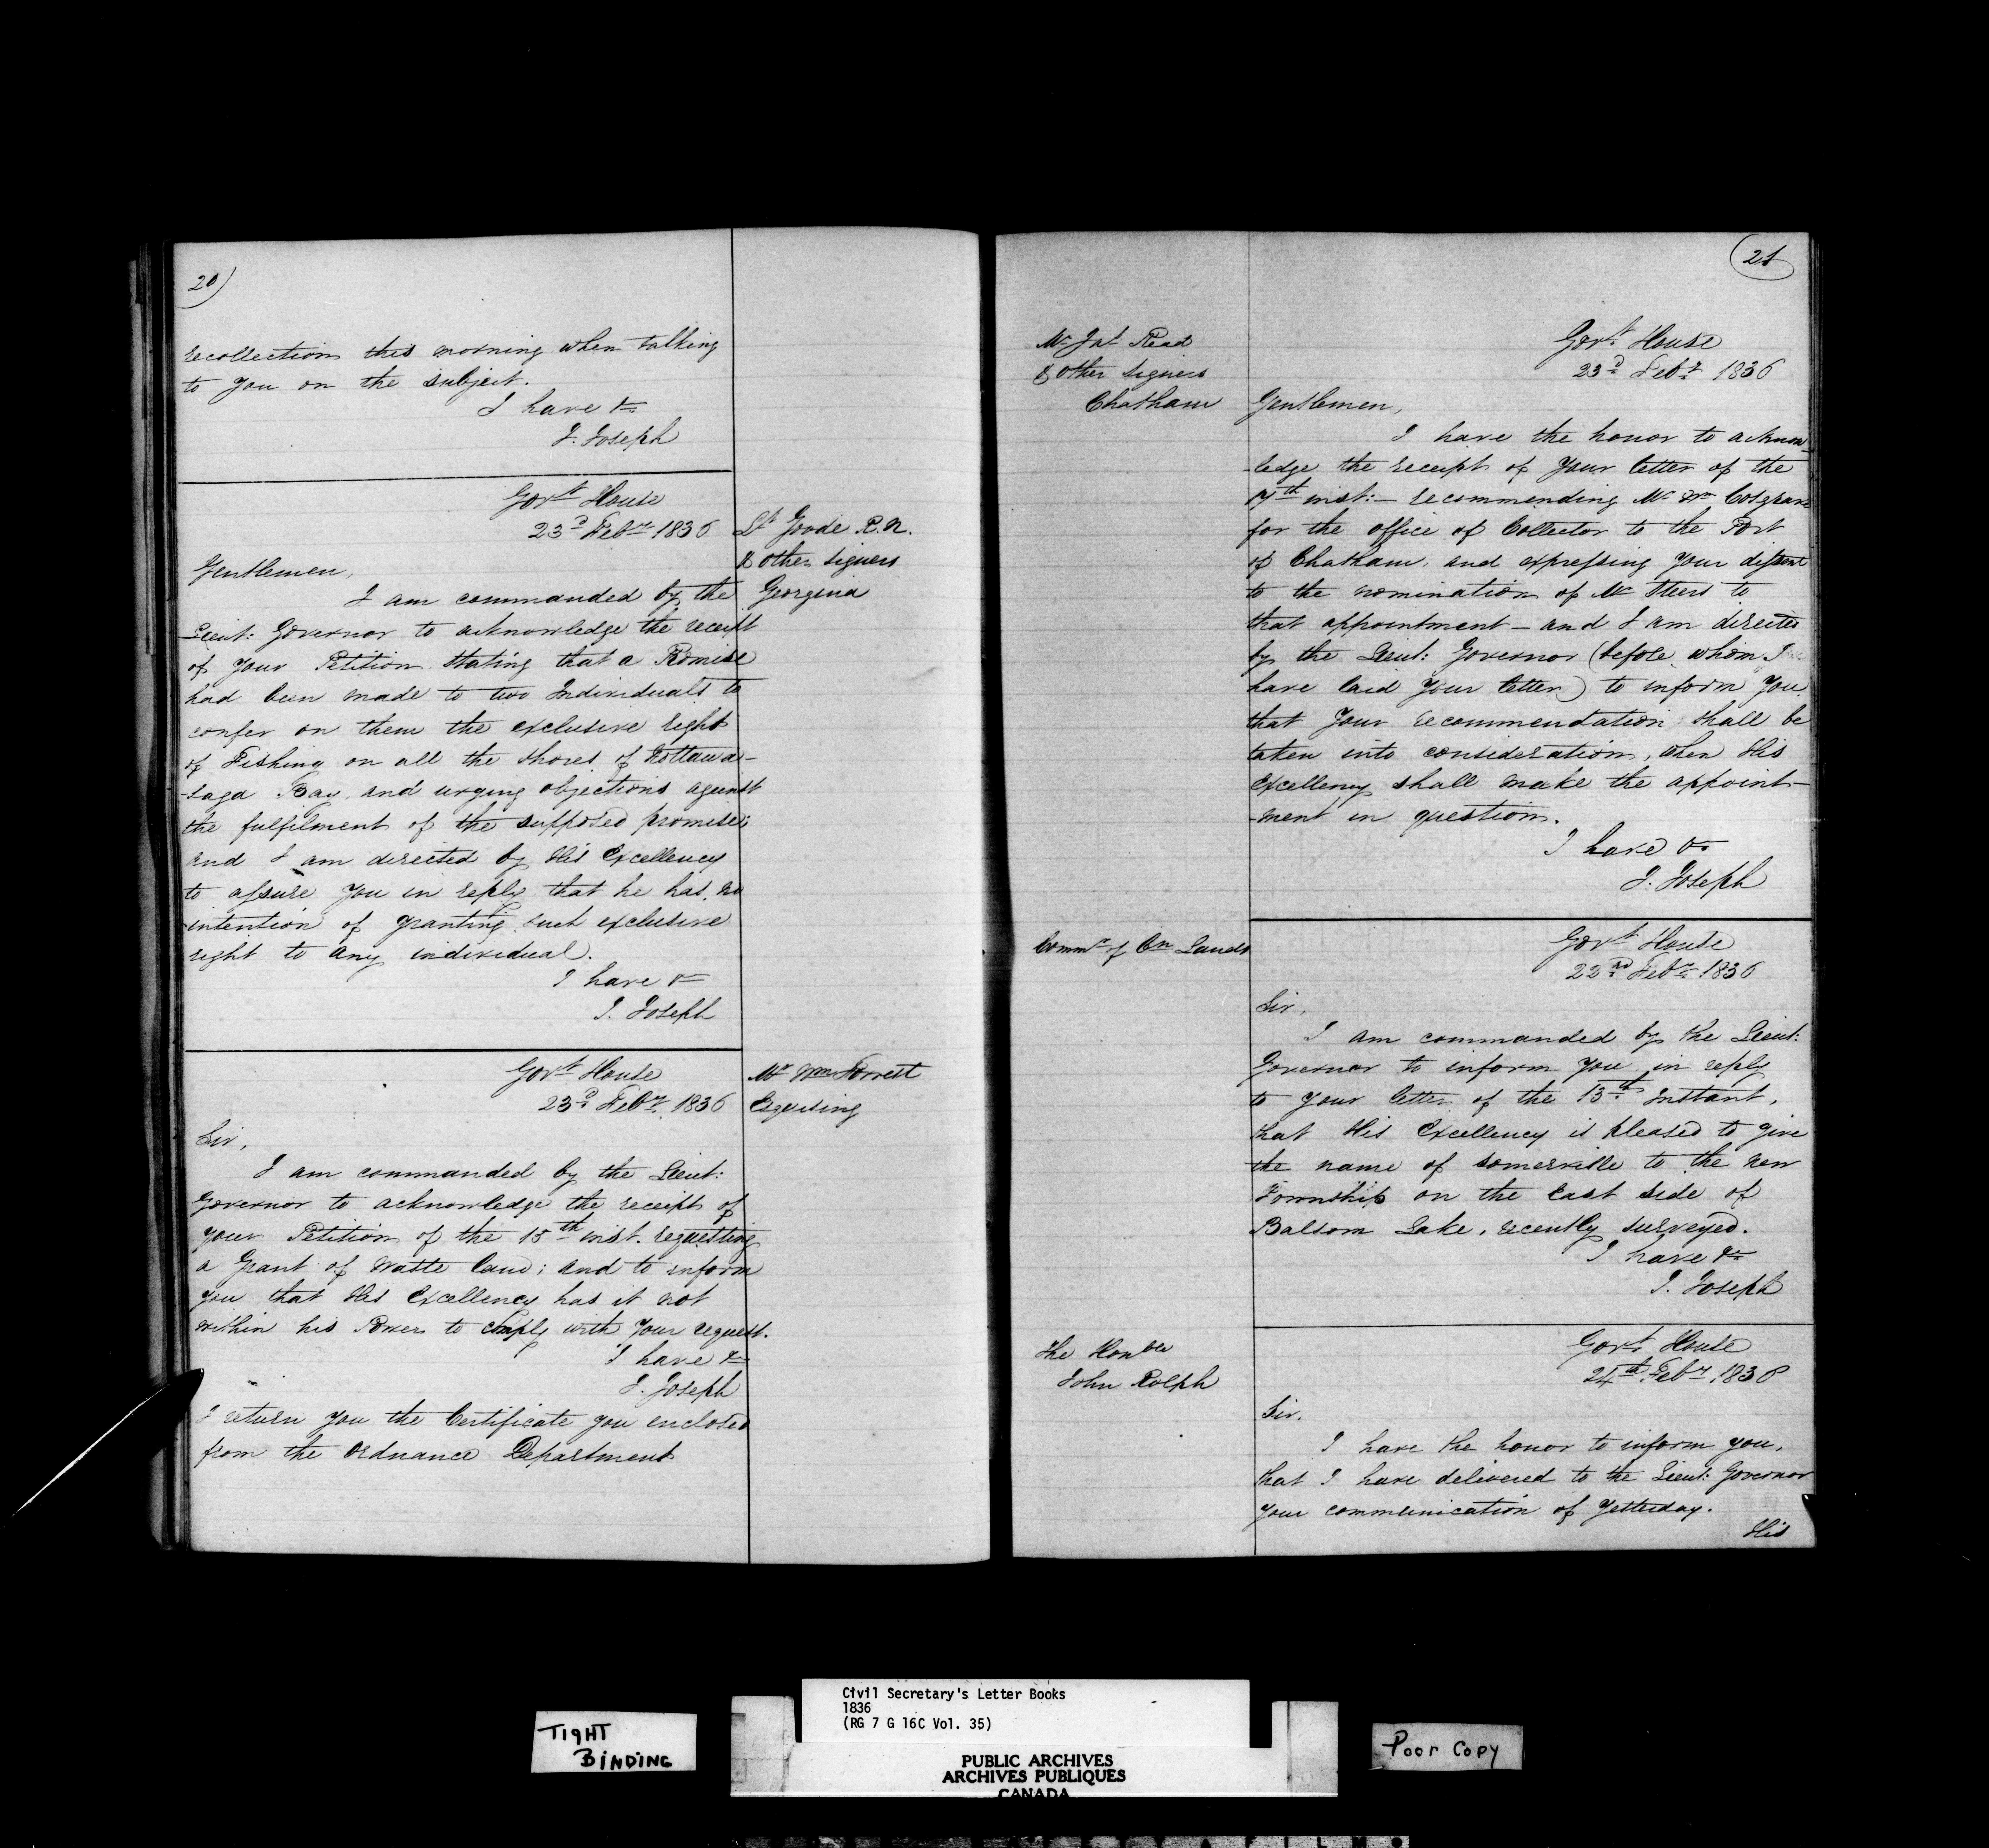 20)
recollection this morning when talking
to you on the subject.
I have &c
J. Joseph
Govt House
23d Feby 1836
Lt Goode R.N.
& other signers
Georgina
Gentlemen,
I am commanded by the
Lieut: Governor to acknowledge the receipt
of your Petition stating that a Promise
had been made to two Individuals to
confer on them the exclusive right
of Fishing on all the shores of Nottawa-
-saga Bay, and urging objections against
the fulfilment of the supposed promise;
and I am directed by His Excellency
to assure you in reply that he has no
intention of granting such exclusive
right to any individual.
I have &c
J. Joseph
Govt House
23d Feby 1836
Mr Wm Forrest
Esquesing
Sir,
I am commanded by the Lieut:
Governor to acknowledge the receipt of
your Petition of the 15th inst. requesting
a Grant of Waste land; and to inform
you that His Excellency has it not
within his Power to comply with your request.
I have &c
J. Joseph
I return you the Certificate you enclosed
from the Ordnance Department
21
Mr Jas Read
& other signers
Chatham
Govt House
23d Feby 1836
Gentlemen,
I have the honor to acknow-
-ledge the receipt of your letter of the
inst:- recommending Mr Wm Cosgrave
for the office of Collector to the Port
of Chatham, and expressing your dissent
to the nomination of Mr Steers to
that appointment - and I am directed
by the Lieut: Governor (before whom I
have laid your letter) to inform you
that your recommendation shall be
taken into consideration, when His
Excellency shall make the appoint-
-ment in question.
I have &c
J. Joseph
Commr of Cn Lands
Govt House
22nd Feby 1836
Sir,
I am commanded by the Lieut:
Governor to inform you in reply
to your letter of the 13th Instant,
that His Excellency is pleased to give
the name of Somerville to the new
Township on the East side of
Balsom Lake, recently surveyed.
I have &c
J. Joseph
The Honble
John Rolph
Govt House
24th Feby 1836
Sir.
I have the honor to inform you,
that I have delivered to the Lieut: Governor
your communication of yesterday.
His
TIGHT
BINDING
Civil Secretary's Letter Books
1836
(RG 7 G 16C Vol. 35)
PUBLIC ARCHIVES
ARCHIVES PUBLIQUES
CANADA
Poor Copy